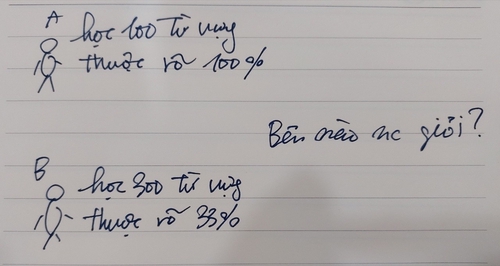 A
học 100 từ vựng
thuộc rõ 100%
Bên nào nc giỏi?
B
học 300 từ vựng
thuộc rõ 33%